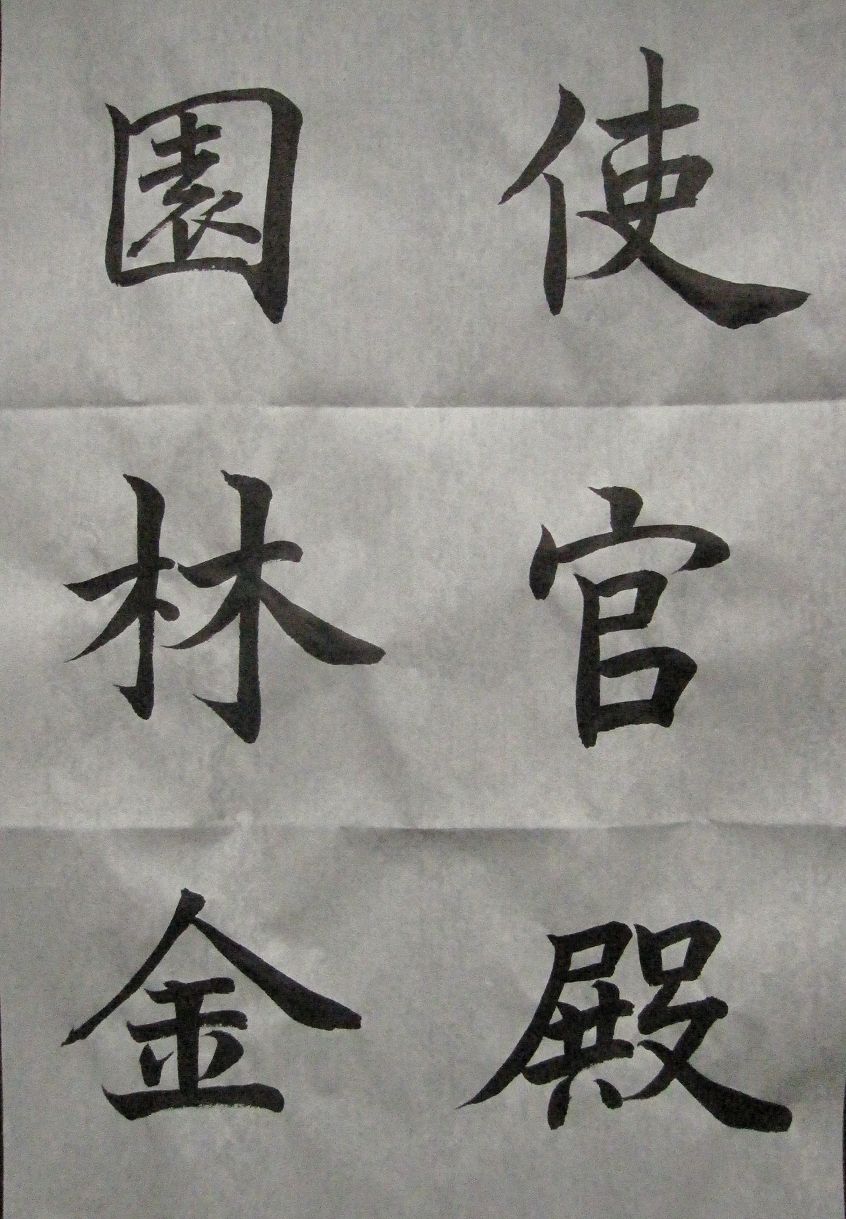 使官殿
園林金